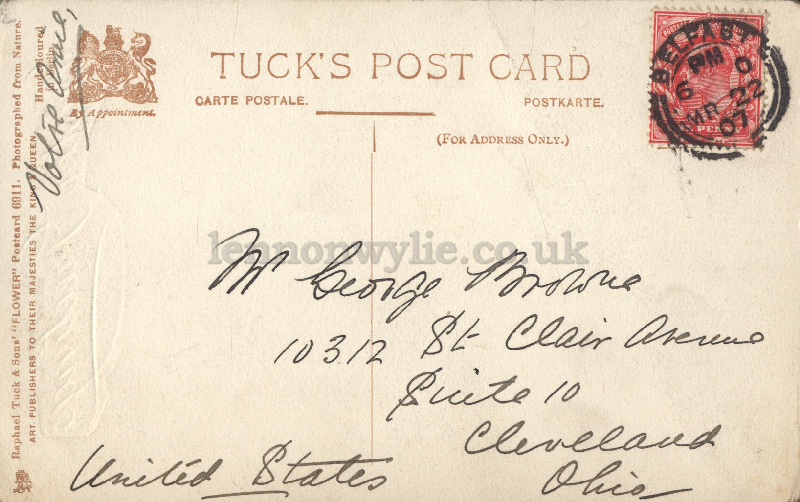 TUCK'S POST CARD
CARTE POSTALE.
POSTKARTE.
(FOR ADDRESS ONLY.)
By Appointment.
Hand-coloured
Raphael Tuck & Sons' "FLOWER" Postcard 6911. Photographed from Nature.
ART PUBLISHERS TO THEIR MAJESTIES THE KING & QUEEN.
BELFAST
6 PM 0
MR 22
07
lennonwylie.co.uk
Mr George Browne
10312 St Clair Avenue
Suite 10
Cleveland
Ohio
United States